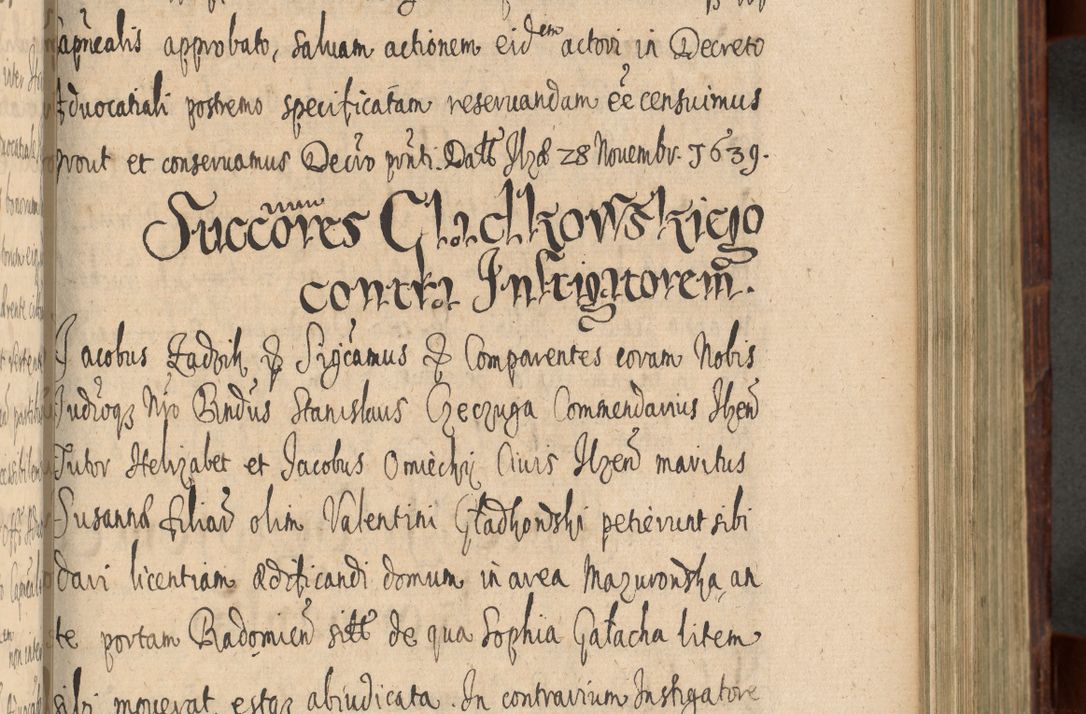 apnealis approbato, saluam actionem eidem actori in Decreto
Advocatiali postremo specificatam reseruandam eē censuimus
prout et conseruamus Decro pnti. Datt Ilzae 28 Novembr. 1639.
Succōres Gladkowskiego
contra Instigatorem.
Jacobus Zadzik & Sigcamus & Comparentes coram Nobis
Judioqz Nro Bindus Stanislaus Czeczuga Commendarius Ilzen
Tutor Helizabet et Jacobus Omiechy Ciuis Ilzen maritus
Susanna filiar olim Valentini Gładkowski petierunt sibi
dari licentiam aedificandi domum in area Mazuronska, an
te portam Radomien sitt de qua Sophia Gałacha litem
sibi mouerat estqz abiudicata. In contrarium Instigatore